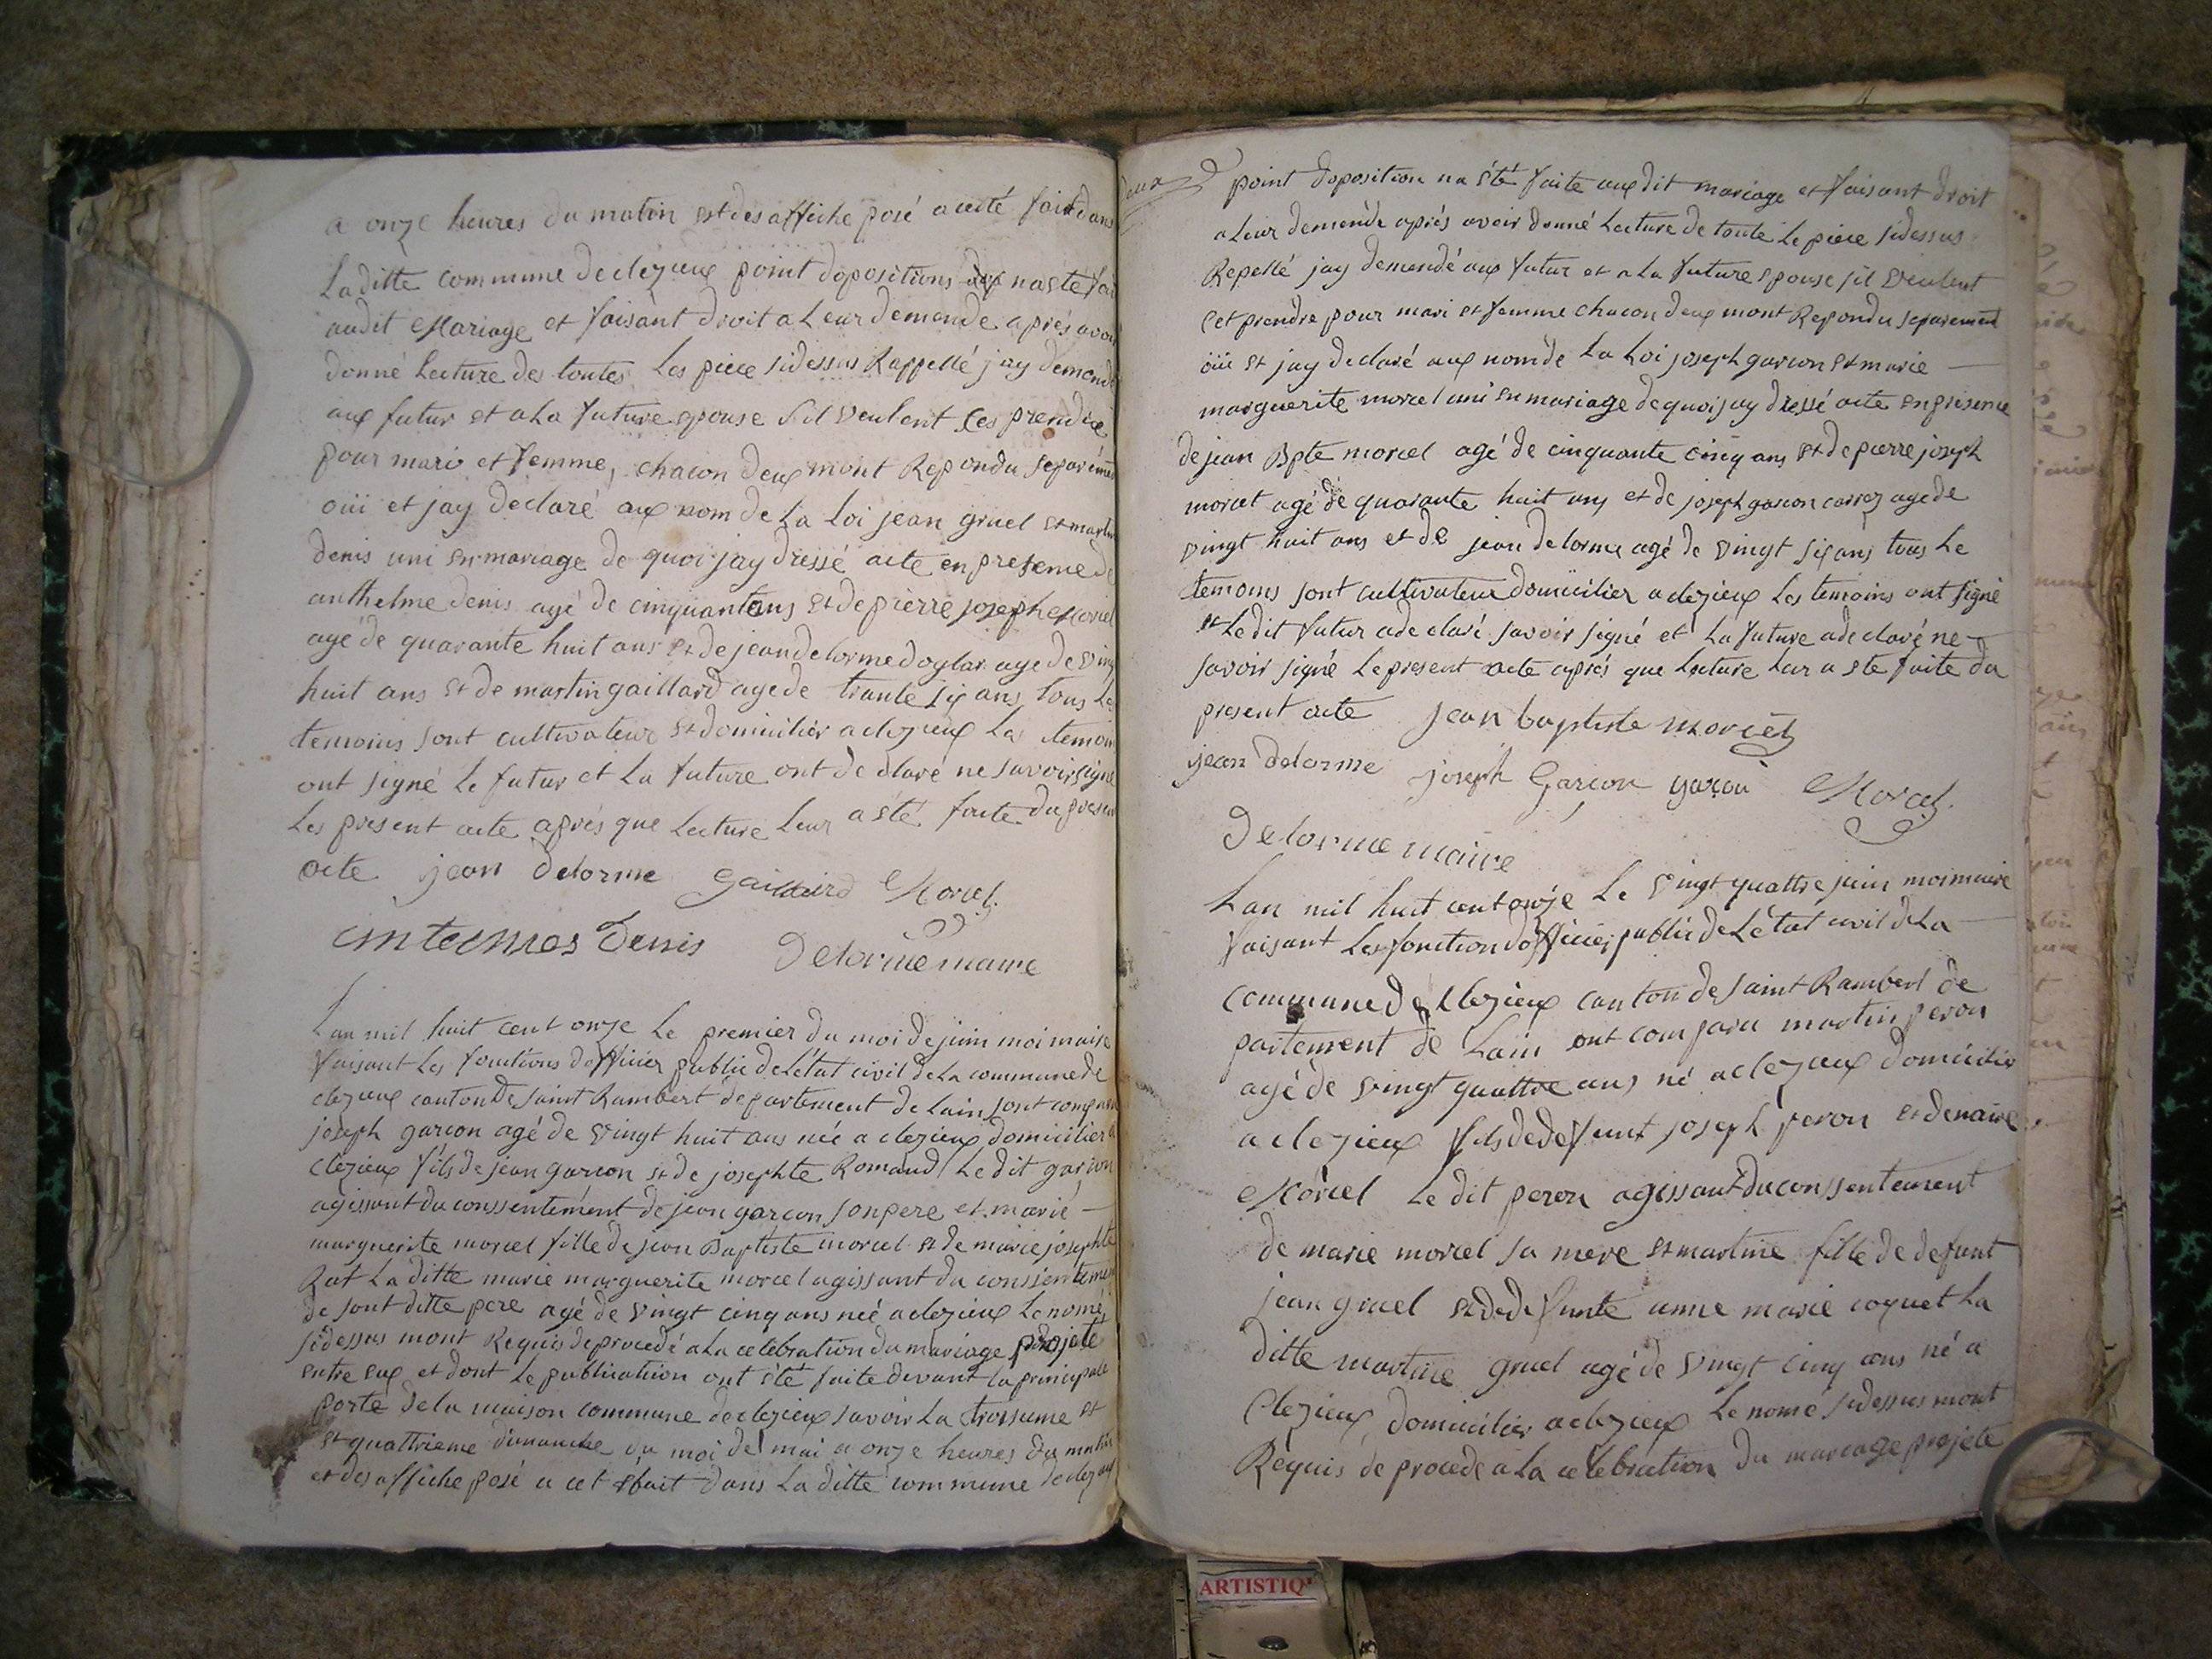 a onze heures du matin et des affiche posé a ceite fait dans
La ditte commune de clezieux point dopositions na ete fai
audit Mariage et faisant droit a Leur demende aprés avoi
donné Lecture des toutes Les piece sidessus Rappellé jay demendé
aux futur et a La future epouse sil veulent ces prendre
pour mari et femme, chacon deux mont Repondu separémen
oüi et jay déclaré aux nom de La Loi jean gruel et marti
denis uni en mariage de quoi jay dressé acte en presence de
anthelme denis agé de cinquante ans et de pierre joseph Morcel
agé de quarante huit ans et de jean delorme doglar age de ving
huit ans et de martin gaillard age de trante six ans tous Les
temoins sont cultivateur et domicilier a clezieux Les temoin
ont signé Le futur et La future ont de claré ne savoir signé
Les present acte aprés que Lecture Leur a été faite du presen
acte jean delorme Gaillard Morcel
Denis Delorme maire
Lan mil huit cent onze Le premier du moi de juin moi maire
faisant Les fonctions dofficier public de Létat civil de La commune de
clezieux canton de saint Rambert departement de Lain sont comparu
joseph garcon agé de vingt huit ans née a clezieux domicilier a
clezieux fils de jean garcon et de josephte Romand Le dit garcon
agissant du conssentément de jean garcon son pere et marié
marguerite morcel fille de jean Baptiste morcel et de marie josephte
Rat La ditte marie marguerite morcel agissant du conssentemen
de sont ditte pere agé de vingt cinq ans née a clezieux Le nomé
sidessus mont Requis de procedé a La celebration du mariage projeté
entre eux et dont Le publication ont été faite devant la principale
porte de la maison commune de clezieux savoir La troisieme et
et quattrieme dimanche du moi de mai a onze heures du matin
et des affiche posé a cet efait dans La ditte commune de clezieux
deux point doposition na été faite aux dit mariage et faisant droit
a Leur demende aprés avoir donné Lecture de toute Le piece sidessus
Repellé jay demendé aux futur et a La future epouse sil veulent
cet prendre pour mari et femme chacon deux mont Repondu separement
oüi et jay declaré aux nom de La Loi joseph garcon et marie
marguerite morcel uni en mariage de quoi jay dressé acte en presence
de jean Bpte morcel agé de cinquante cinq ans et de pierre joseph
morcel agé de quarante huit ans et de joseph garcon carroz age de
vingt huit ans et de jean delorme agé de vingt six ans tous Le
temoins sont cultivateur domicilier a clezieux Les temoins ont signé
et Le dit futur a de claré savoir signé et La future a declaré ne
savoir signé Le present acte aprés que Lecture Leur a ete faite du
present acte jean baptiste morcel
jean delorme joseph Garcon garçon Morcel
Delorme maire
Lan mil huit cent onze Le vingt quattre juin moi maire
faisant Les fonction dofficier public de Létat civil de La
commune de Clezieux canton de saint Rambert de
partement de Lain ont comparu martin peron
agé de vingt quattre ans né a clezieux domicilier
a clezieux fils de defunt joseph peron et de marie
Morcel Le dit peron agissant du conssentement
de marie morcel sa mere et martine fille de defunt
jean gruel et de defunte anne marie coquet La
ditte martine gruel agé de vingt cinq ans né a
Clezieux domicilier a clezieux Le nomé sidessus mont
Requis de procede a La celebration du mariage projeté
ARTISTIQ